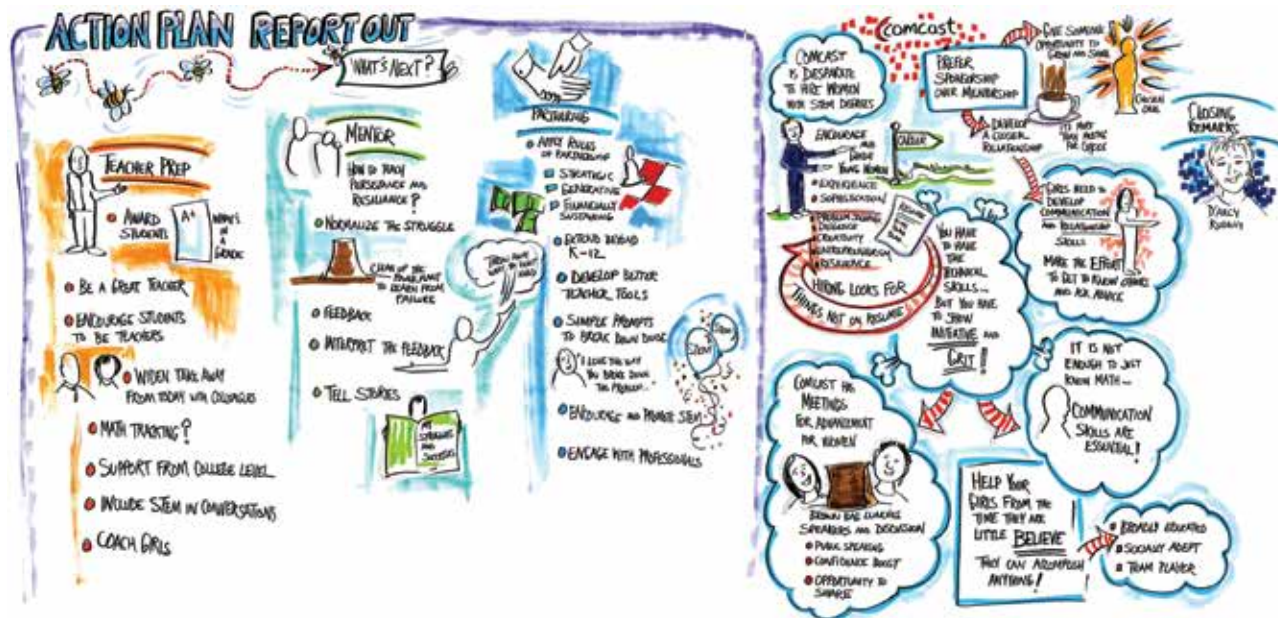 ACTION PLAN REPORT OUT
WHAT'S NEXT?
TEACHER PREP
AWARD
STUDENTS
A+
WHAT'S
IN A
GRADE
BE A GREAT TEACHER
ENCOURAGE STUDENTS
TO BE TEACHERS
WIDEN TAKE AWAY
FROM TODAY WITH COLLEAGUES
MATH TRACKING?
SUPPORT FROM COLLEGE LEVEL
INCLUDE STEM IN CONVERSATIONS
COACH GIRLS
MENTOR
HOW TO TEACH
PERSISTANCE AND
RESILIANCE?
NORMALIZE THE STRUGGLE
CLEAN UP THE
TO LEARN FROM
FAILURE
FEEDBACK
INTERPRET THE FEEDBACK
TELL STORIES
MY
STRUGGLES
AND
SUCCESSES
THROW AWAY
WHAT YOU DON'T
NEED
PARTNERING
APPLY RULES
OF PARTNERSHIP
STRATEGIC
GENERATIVE
FINANCIALLY
SUSTAINING
EXTEND BEYOND
K-12
DEVELOP BETTER
TEACHER TOOLS
SIMPLE PROMPTS
TO BREAK DOWN DIVIDE
I LOVE THE WAY
YOU BROKE DOWN
THE PROBLEM...
STEM
STEM
ENCOURAGE AND PROMOTE STEM
ENGAGE WITH PROFESSIONALS
comcast
COMCAST
IS DESPARATE
TO HIRE WOMEN
WITH STEM DEGREES
PREFER
SPONSORSHIP
OVER MENTORSHIP
GIVE SOMEONE
OPPORTUNITY TO
GROW AND SHINE
CHOSEN
ONE
DEVELOP
A CLOSER
RELATIONSHIP
IT'S MORE
THAN MEETING
FOR COFFEE
CLOSING
REMARKS
D'ARCY
RUDNAY
ENCOURAGE
AND
GUIDE
YOUNG WOMEN
CAREER
EXPERIENCE
SOPHISTICATION
PROBLEM SOLVING
DILIGENCE
CREATIVITY
ENTREPRENEURISM
RESILIENCE
RESUME
HIRING LOOKS FOR
THINGS NOT ON RESUME
YOU HAVE
TO HAVE
THE
TECHNICAL
SKILLS...
BUT YOU HAVE
TO SHOW
INITIATIVE AND
GRIT!
GIRLS NEED TO
DEVELOP
COMMUNICATION
AND RELATIONSHIP
SKILLS
MAKE THE EFFORT
TO GET TO KNOW OTHERS
AND ASK ADVICE
IT IS NOT
ENOUGH TO JUST
KNOW MATH...
COMMUNICATION
SKILLS ARE
ESSENTIAL!
COMCAST HAS
MEETINGS
FOR ADVANCEMENT
FOR WOMEN
BROWN BAG LUNCHES
SPEAKERS AND DISCUSSION
PUBLIC SPEAKING
CONFIDENCE BOOST
OPPORTUNITY TO
SHARE
HELP YOUR
GIRLS FROM THE
TIME THEY ARE
LITTLE BELIEVE
THEY CAN ACOMPLISH
ANYTHING!
BROADLY EDUCATED
SOCIALLY ADEPT
TEAM PLAYER